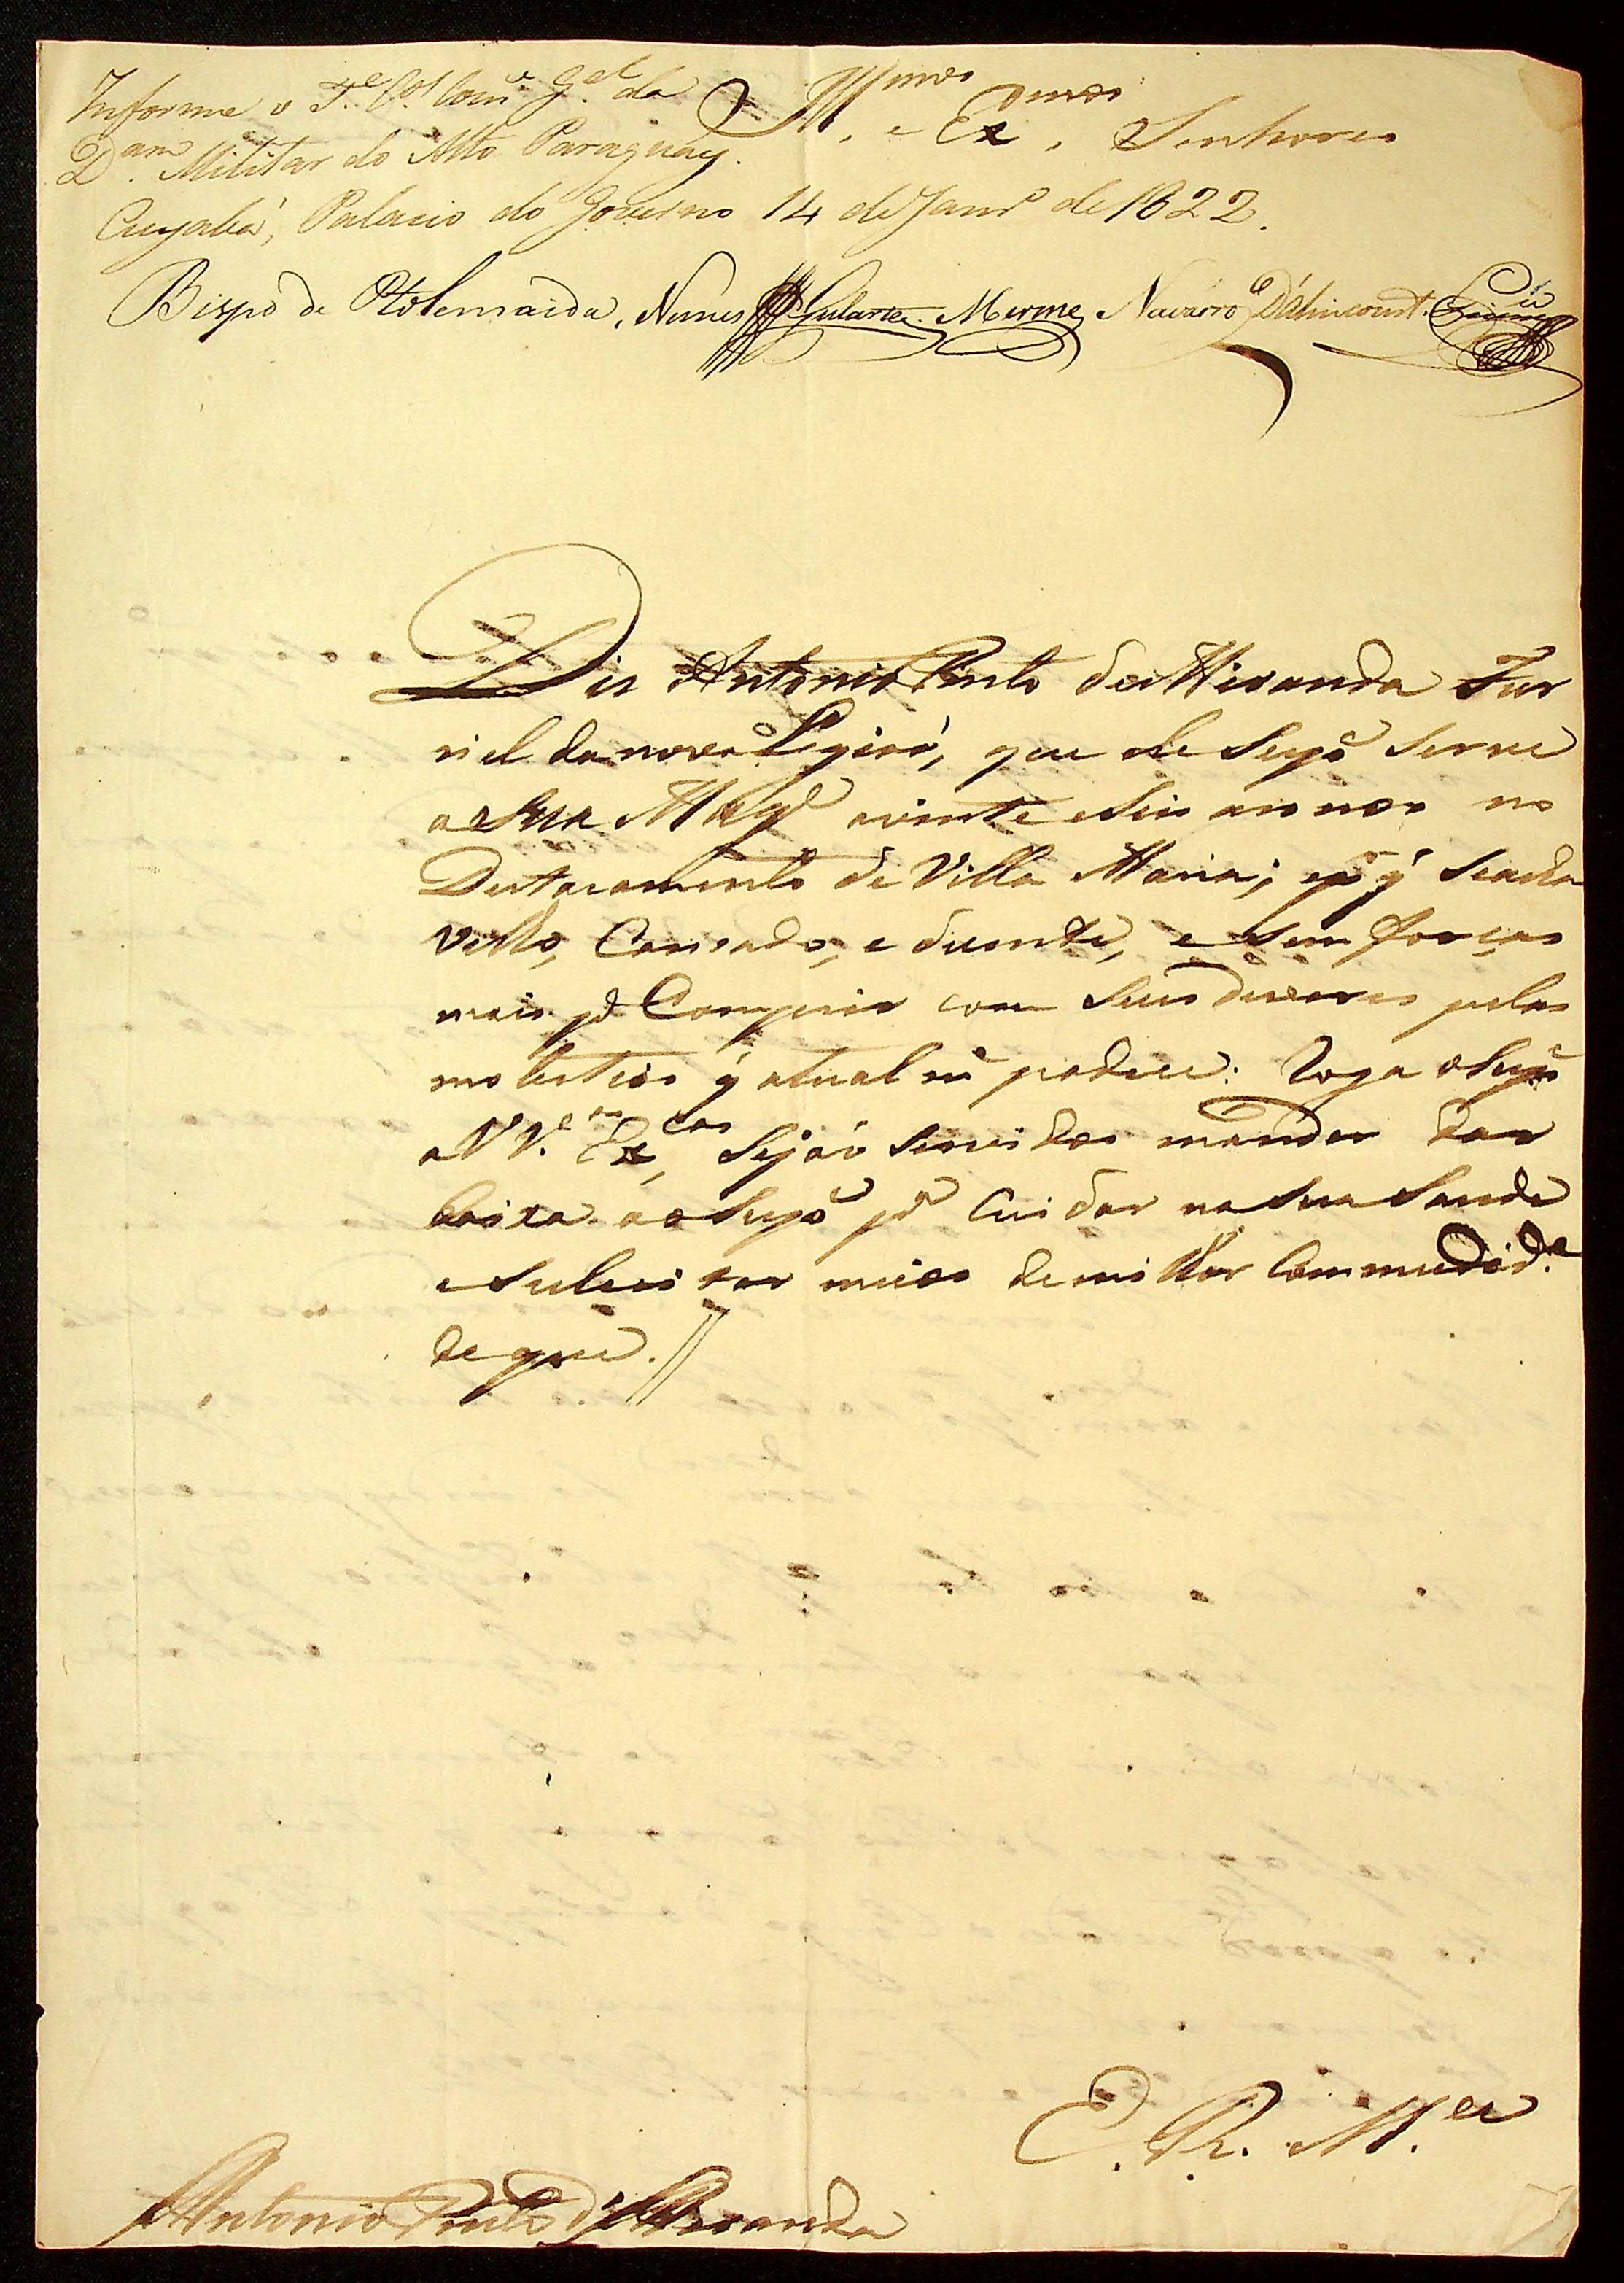 Informe o T.e C.el Com.e G.al da
D.am Militar do Alto Paraguay.
Cuyabá, Palacio do Governo 14 de Janr.o de 1822.
Bispo de Ptolemaida. Nunes Gularte. Merme Navarro D'Alincourt.
Ill.mos e Ex.mos Senhores
Diz Antonio Pinto de Miranda Fur
riel da nova Legiaó, que elle Supe. serve
a Sua Mag.e vinte e seis annos no
Destacamento de Villa Maria; e p.r q' se acha
velho, Cansado, e duente, e sem forças
mais p.a Comprir com seus deveres pelas
molestias q' atual m.e padece: Roga o Supe.
a VV. Ex.cas Sejaó servidos mandar dar
baixa ao Supe. p.a Cuidar na sua Saude
e sulicitar meios de milhor Commudid.e
de que. //
E. R. M.ce
Antonio Pinto de Miranda